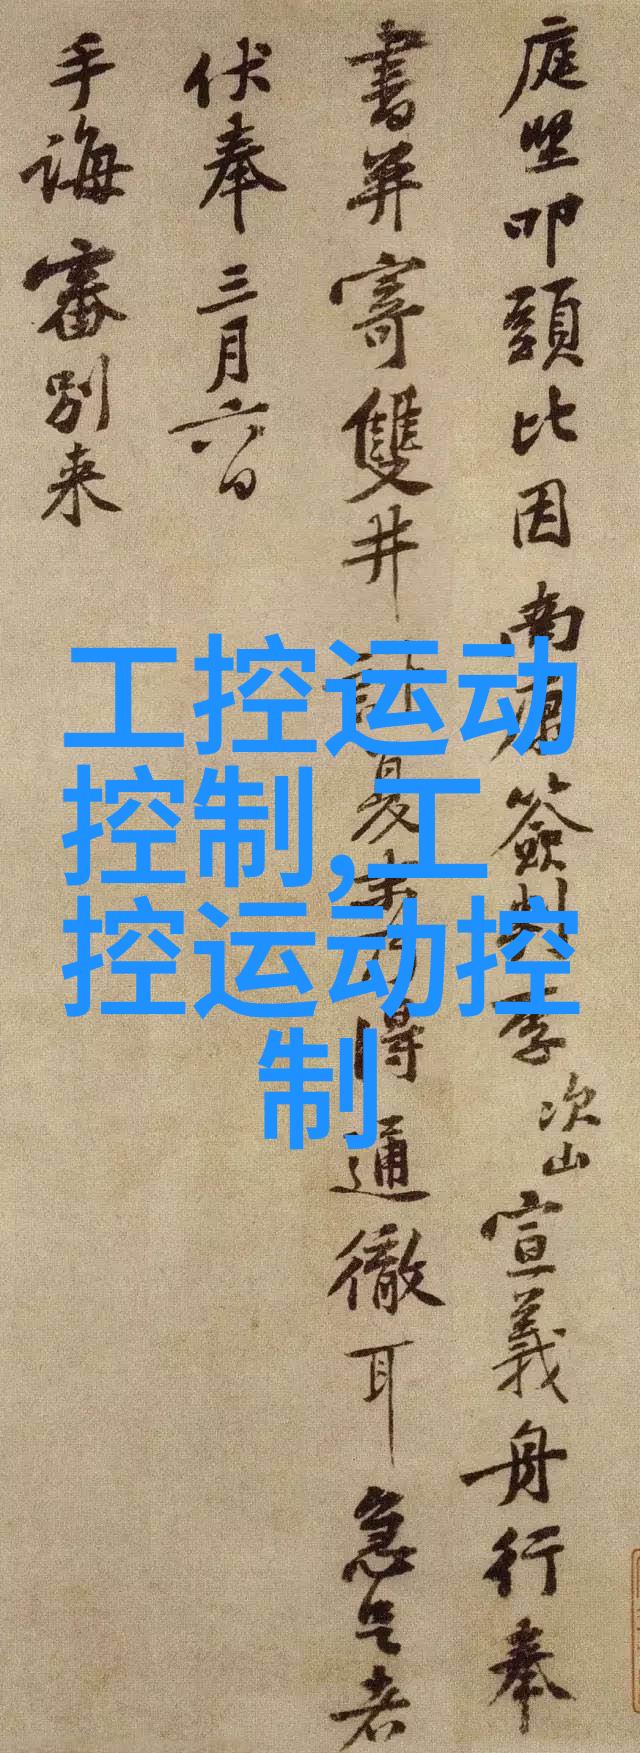 庭堅叩頭比因南康簽判李次山宣義舟行奉
書并寄雙井計夏末乃得通徹耳急足者
伏奉三月六日
手誨審別来
工控运动
控制,工
控运动控
制